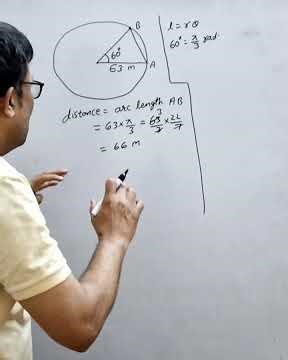 B
60°
63 m
A
l = r θ
60° = π/3 rad.
distance = arc length AB
= 63 × π/3 = 63/3 × 22/7
= 66 m